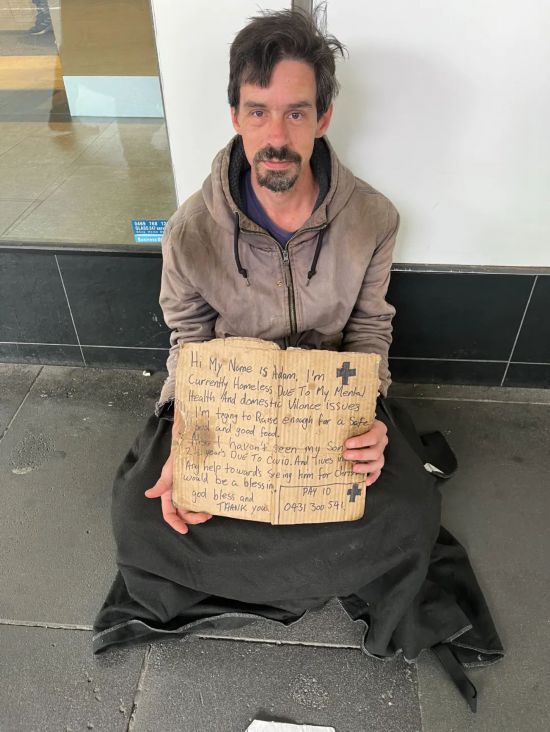 Hi My Name is Adam, I'm
Currently Homeless Due To My Mental
Health And domestic Vilonce issues
I'm trying to Raise enough for a Safe
and good food.
Also I haven't seen my Son
2 years Due To Covid. And lives in
Any help towards seeing him for
would be a blessing
god bless and
THANK you.
PAY ID
0431 300 541
0469 788
GLASS
Business